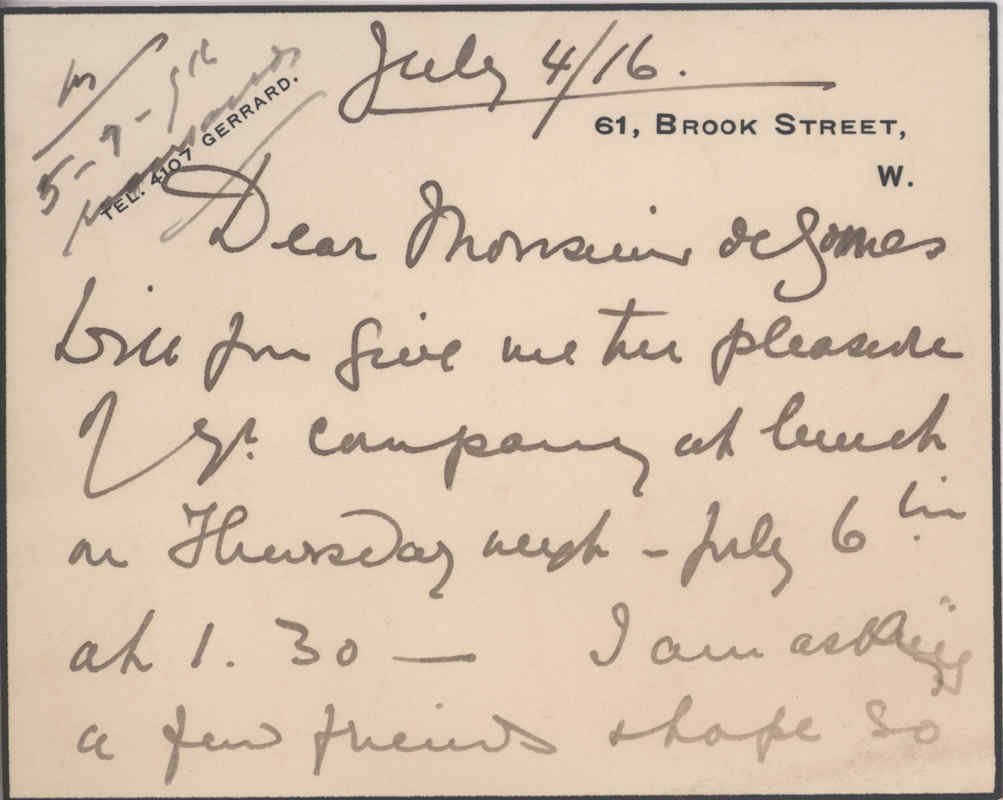 July 4/16.
5-7-916
TEL. 4107 GERRARD.
61, BROOK STREET,
W.
Dear Monsieur de Gomes
Will you give me the pleasure
of yr. company at lunch
on Thursday next - July 6th
at 1.30 — I am asking
a few friends & hope so